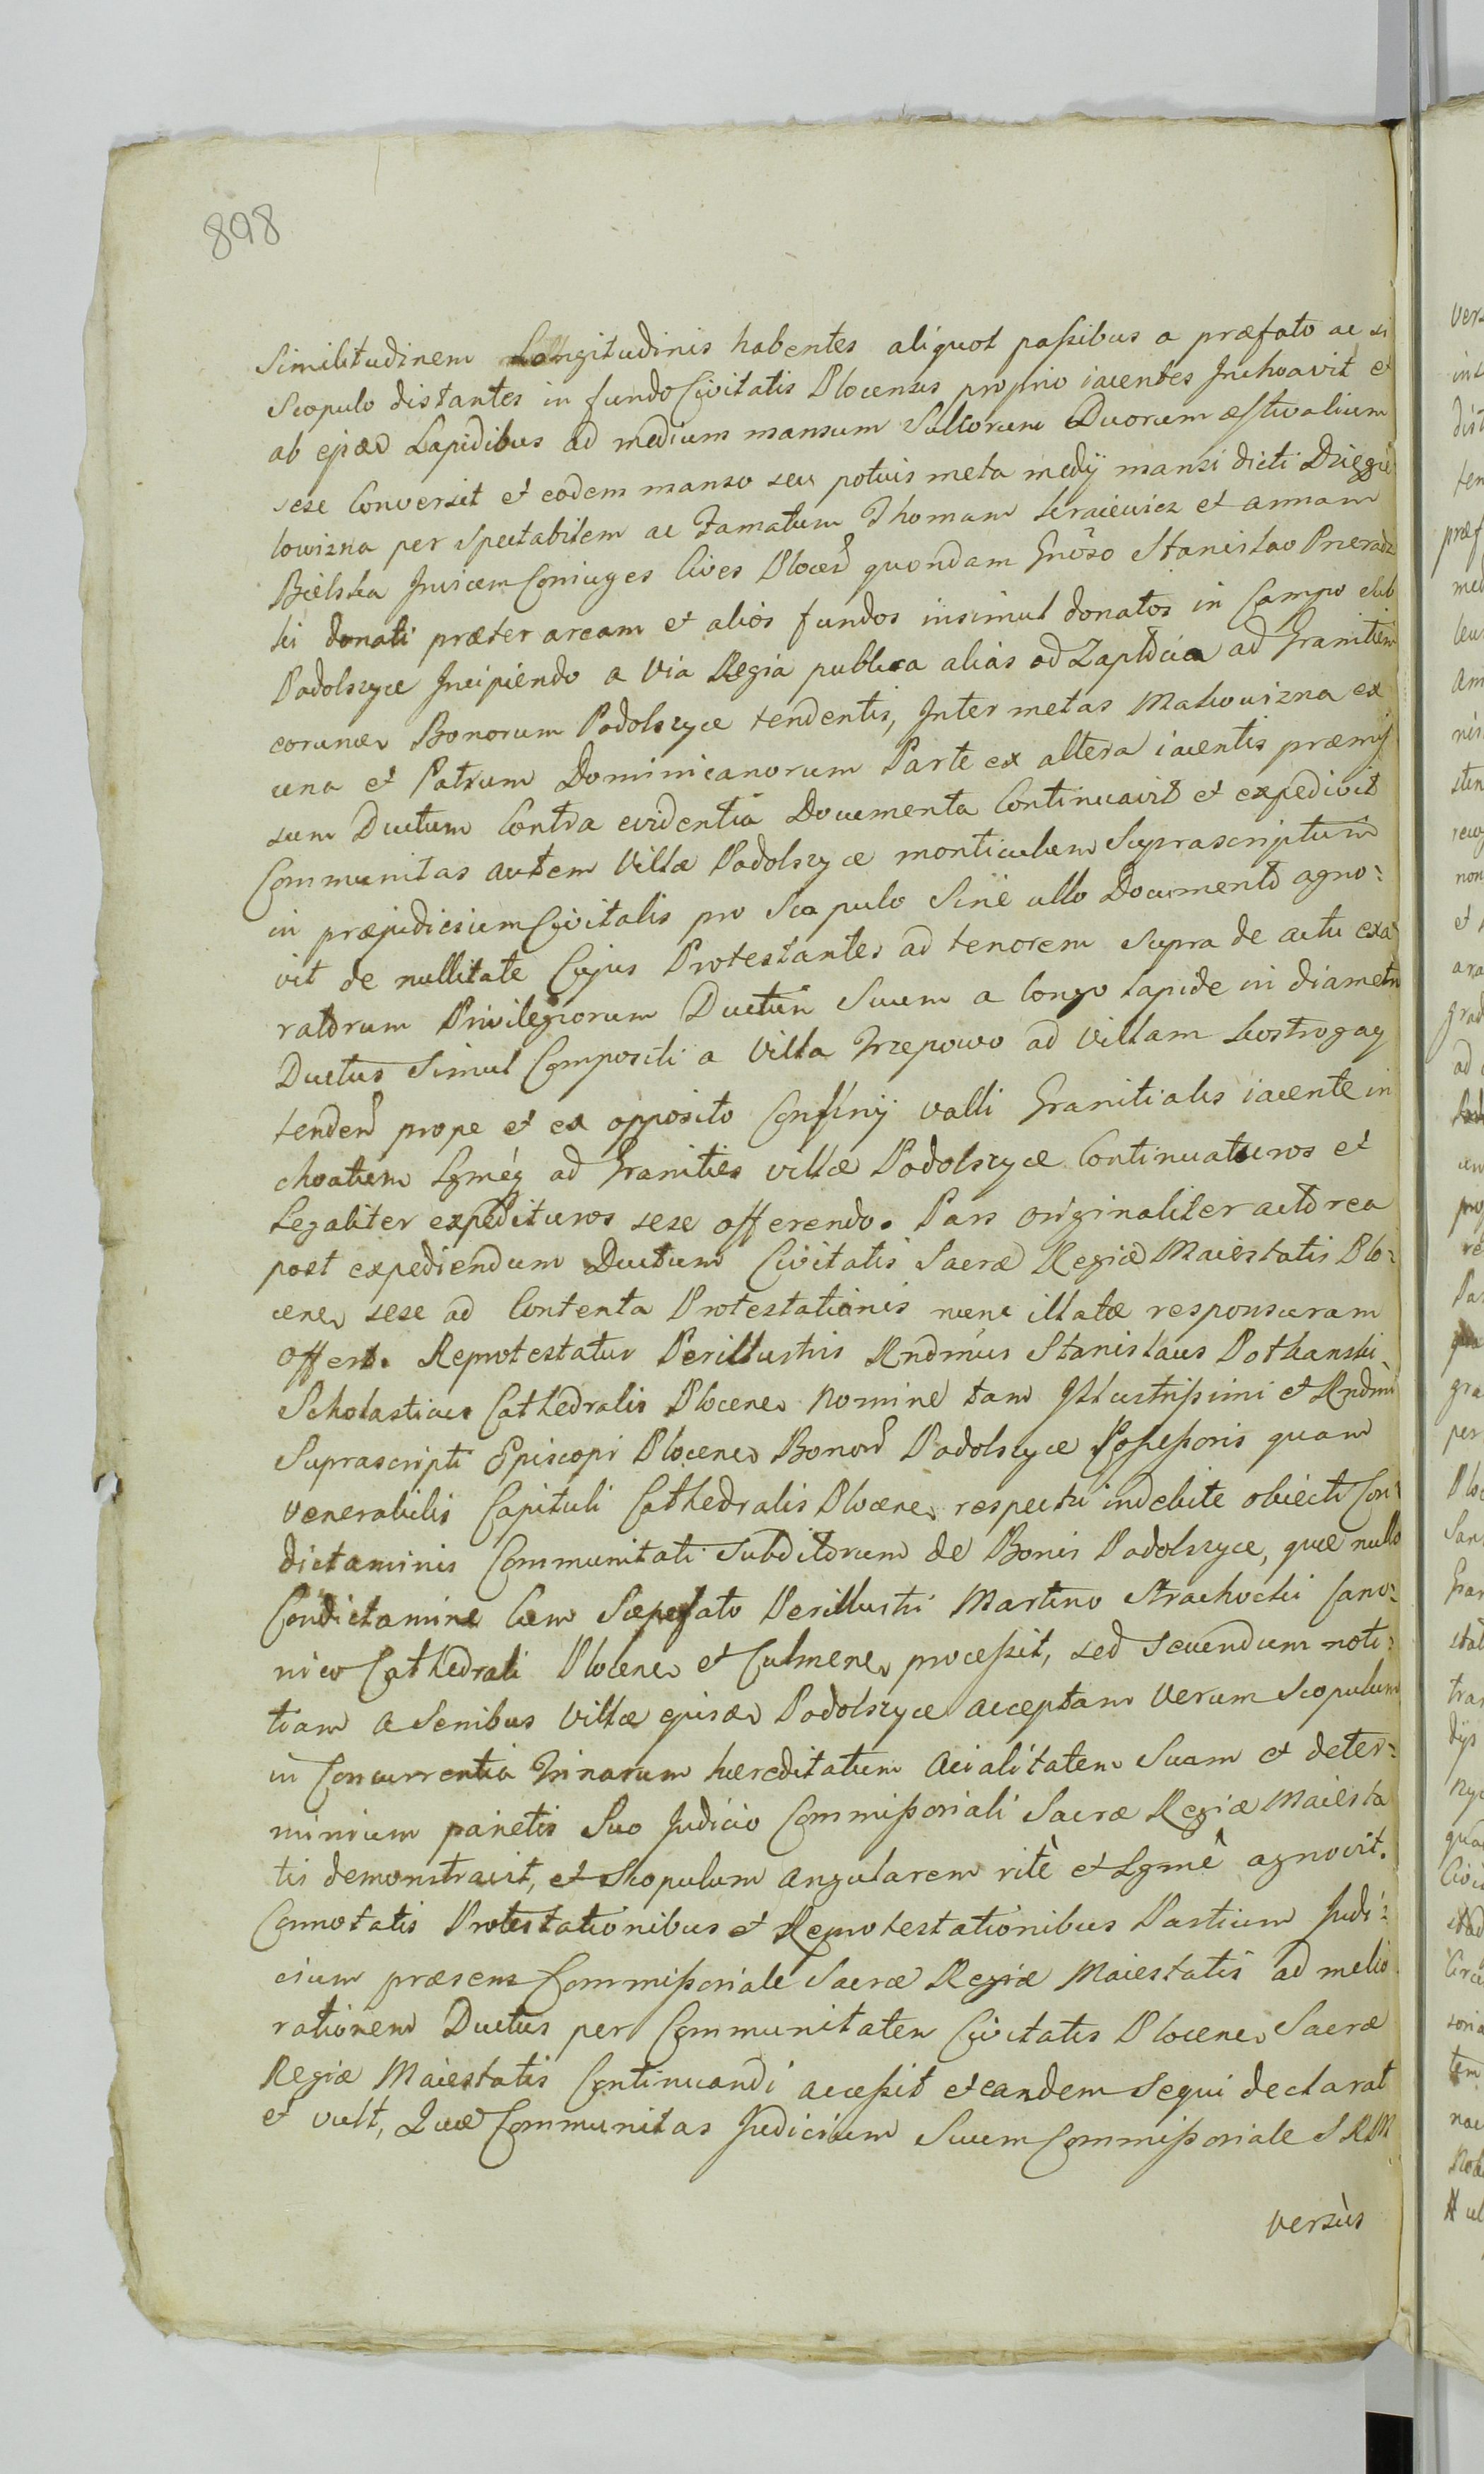 898
Similitudinem Longitudinis habentes aliquot passibus a præfato ac si
Scopulo distantes in fundo Civitatis Plocensis proprio iacentes Inchoavit et
ab ejsd Lapidibus ad medium mansum Sulcorum Duorum æstivalium
sese Conversit et eodem manso seu potius meta medÿ mansi dicti Dzięgie
lowizna per Spectabilem ac Famatum Thomam Kraiewicz et annam
Bielska Invicem Coniuges Cives Plocen quondam Gnõso Stanislao Prieradz
ki donati præter aream et alios fundos insimul donatos in Campo sub
Podolszyce Incipiendo a Via Regia publica alias od Zaplocia ad Granitiem
eorund Bonorum Podolszyce tendentis, Inter metas Makowizna ex
una et Patrum Dominicanorum Parte ex altera iacentis præmis
sum Ductum Contra evidentia Documenta Continuavit et expedivit
Communitas autem Villæ Podolszyce monticulum Suprascriptum
in præjudicium Civitatis pro Scopulo Sine ullo Documento agno:
vit de nullitate Cujus Protestantes ad tenorem Supra de actu exa
ratorum Privilegiorum Ductum Suum a longo lapide in diametro
Ductus Simul Compositi a Villa Trzepowo ad Villam Kostrogay
tenden prope et ex opposito Confinÿ valli Granitialis iacente in
choatum Lgmeq ad Granities villæ Podolszyce Continuaturos et
Legaliter expedituros sese offerendo. Pars originaliter actorea
post expediendum Ductum Civitatis Sacræ Regiæ Maiestatis Plo:
cen sese ad Contenta Protestationis nunc illatæ responsuram
offert. Reprotestatur Perillustris Rndmus Stanislaus Pothanski
Scholasticus Cathedralis Plocen Nomine tam Illustrissimi et Rndmi
Suprascripti Episcopi Plocen Bonor Podolszyce Possessoris quam
Venerabilis Capituli Cathedralis Plocen respectu indebite obiecti Con:
dictaminis Communitati Subditorum de Bonis Podolszyce, quæ nullo
Condictamine Cum Sæpefato Perillustri Martino Strachocki Cano:
nico Cathedrali Plocen et Culmen processit, sed Secundum noti:
tiam a Senibus Villæ ejusd Podolszyce acceptam Verum Scopulum
in Concurrentia Trinarum hæreditatum acialitatem Suam et deter:
minium parietis Suo Judicio Commissoriali Sacræ Regiæ Maiesta
tis demonstravit, et Scopulum angularem ritè et Lgmê agnovit.
Connotatis Protestationibus et Reprotestationibus Partium Judi:
cium præsens Commissoriale Sacræ Regiæ Maiestatis ad melio
rationem Ductus per Communitatem Civitatis Plocen Sacræ
Regiæ Maiestatis Continuandi accessit et eandem Sequi declarat
et vult, Quæ Communitas Judicium Suum Commissoriale S R M
versùs